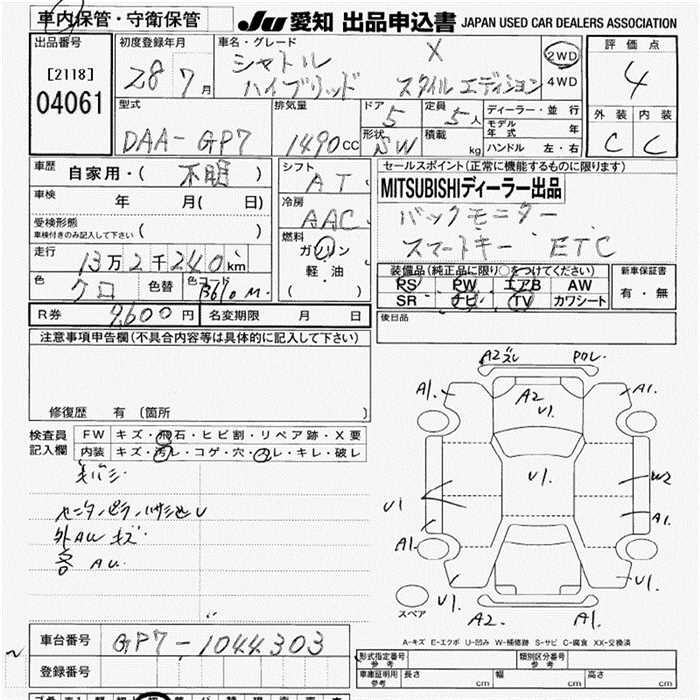 車内保管・守衛保管
JU 愛知 出品申込書 JAPAN USED CAR DEALERS ASSOCIATION
出品番号
[2118]
04061
初度登録年月
28 7月
車名・グレード
シャトル X
ハイブリッド スタイルエディション
2WD
4WD
評価点
4
外装 内装
C C
型式
DAA-GP7
排気量
1490cc
ドア
5
形状
SW
定員
5人
積載
kg
ディーラー・並行
モデル年式 年
ハンドル 左・右
車歴
自家用・( 不明 )
車検
年 月( 日)
受検形態
車検付きのみ記入して下さい ( )
走行
13万2千240km
色
クロ
色替
シフト
AT
冷房
AAC
燃料
ガソリン
軽油
( )
セールスポイント(正常に機能するものに限ります)
MITSUBISHIディーラー出品
バックモニター
スマートキー ETC
装備品(純正品に限り○をつけてください)
PS PW エアB AW
SR ナビ TV カワシート
新車保証書
有・無
後日品
R券 9,600円
名変期限 月 日
注意事項申告欄(不具合内容等は具体的に記入して下さい)
修復歴 有 〔箇所 〕
検査員記入欄
FW キズ・飛石・ヒビ割・リペア跡・X要
内装 キズ・汚レ・コゲ・穴・スレ・キレ・破レ
外AW キズ
A2 ズレ
A1.
A2
U1.
A1.
U1.
W2
U1
A1.
A1.
U1.
U1.
A2.
A1.
スペア
A-キズ E-エクボ U-凹み W-補修跡 S-サビ C-腐食 XX-交換済
車台番号
GP7-1044303
登録番号
形式指定番号
参考
類別区分番号
参考
車庫証明用
参考
長さ cm
幅 cm
高さ cm